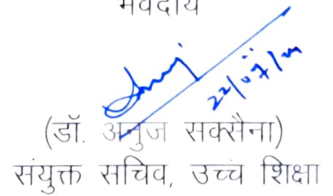 भवदीय
22/07/
(डॉ. अनुज सक्सैना)
संयुक्त सचिव, उच्च शिक्षा